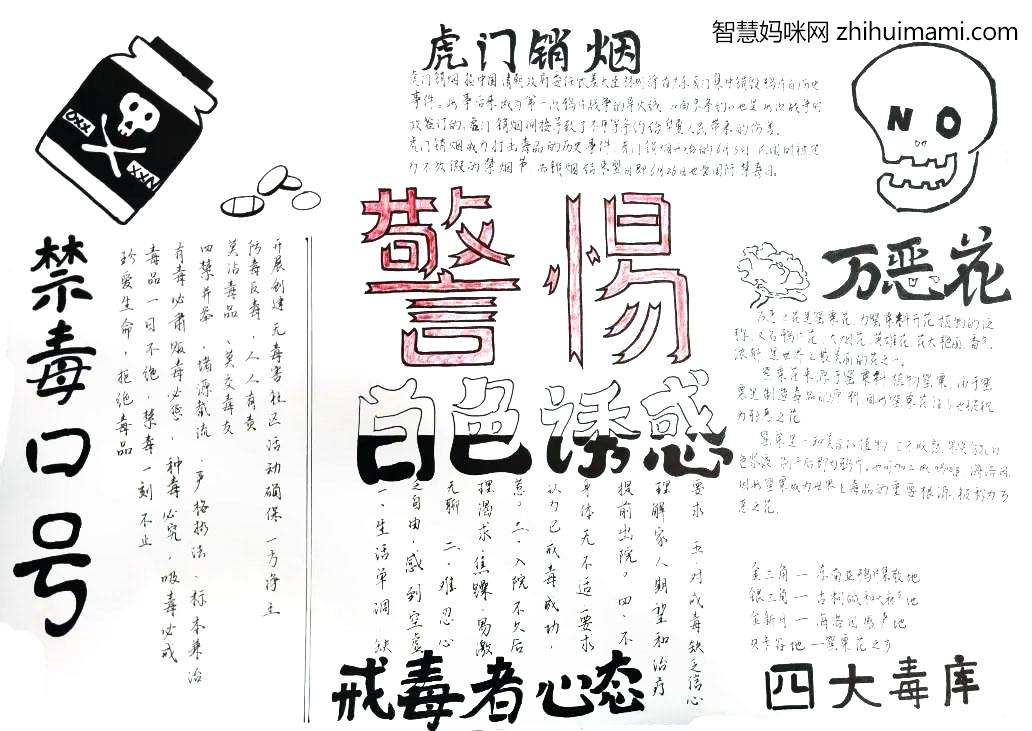 智慧妈咪网 zhihuimami.com
虎门销烟
虎门销烟指中国清朝政府委任钦差大臣林则徐在广东虎门集中销毁鸦片的历史
事件。此事后来成为第一次鸦片战争的导火线，《南京条约》也是此次战争时
改签订的。虎门销烟间接导致了不平等条约给华夏人民带来的伤害。
虎门销烟成为打击毒品的历史事件。虎门销烟开始的6月3日，民国时被定
为不放假的禁烟节，而销烟结束翌日即6月26日也是国际禁毒日。
NO
XXX
XXX
警惕
白色诱惑
禁毒口号
开展创建无毒害社区活动确保一方净土
防毒反毒，人人有责
莫沾毒品、莫交毒友
四禁并举、堵源截流、严格执法、标本兼治
有毒必肃贩毒必惩，种毒必究，吸毒必戒
毒品一日不绝，禁毒一刻不止
珍爱生命，拒绝毒品
万恶花
万恶之花是罂粟花，为罂粟科开花植物的泛
称，又名鸦片花、大烟花、英雄花，花大艳丽，香气
浓郁，是世界上最美丽的花之一。
罂粟花来源于罂粟科植物罂粟，由于罂
粟是制造毒品的原料，因此罂粟花往往也被视
为邪恶之花
罂粟是一种美丽的植物
色浆液，制干后即为鸦片，也可加工成吗啡、海洛因，
因此罂粟成为世界上毒品的重要根源，被称为万
恶之花.
戒毒者心态
一、生活单调，缺
乏自由，感到空虚
无聊 二、难忍心
理渴求，焦躁，易激
惹。三、入院不久后
认为已戒毒成功，
身体无不适，要求
提前出院。四、不
理解家人期望和治疗
要求 五、对戒毒缺乏信心
金三角 — 东南亚鸦片集散地
银三角 — 古柯碱和大麻产地
金新月 — 海洛因原产地
贝卡谷地 — 罂粟花之乡
四大毒库